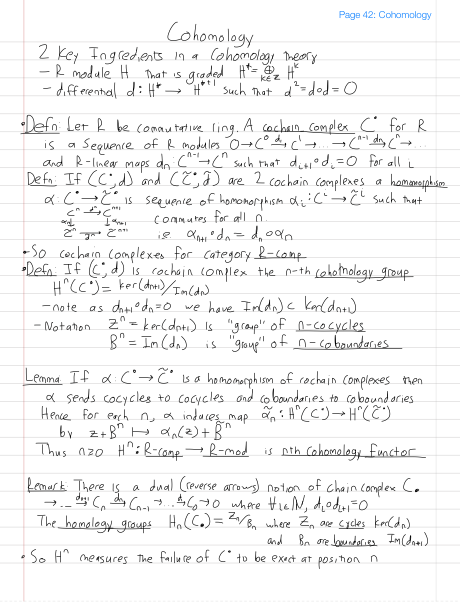 Page 42: Cohomology
Cohomology
2 Key Ingredients in a Cohomology theory
- R module H that is graded H* = ⊕_{k∈Z} H^k
- differential d: H* → H*+1 such that d² = d∘d = 0
• Defn: Let R be commutative ring. A cochain complex C• for R
is a sequence of R modules 0→C⁰ →^{d₁} C¹ → ... → C^{n-1} →^{dₙ} C^n → ...
and R-linear maps dₙ: C^{n-1} → C^n such that d_{i+1}∘d_i = 0 for all i
Defn: If (C•, d) and (C̃•, d̃) are 2 cochain complexes a homomorphism
α: C• → C̃• is sequence of homomorphism α_i: C^i → C̃^i such that
C^n → C^{n+1}
αₙ↓ ↓α_{n+1} commutes for all n.
C̃^n → C̃^{n+1} ie α_{n+1}∘dₙ = dₙ∘αₙ
• So cochain complexes for category R-comp
• Defn: If (C•, d) is cochain complex the n-th cohomology group
H^n(C•) = ker(d_{n+1})/Im(dₙ)
- note as d_{n+1}∘dₙ=0 we have Im(dₙ) ⊂ ker(d_{n+1})
- Notation Z^n = ker(d_{n+1}) is "group" of n-cocycles
B^n = Im(dₙ) is "group" of n-coboundaries
Lemma If α: C• → C̃• is a homomorphism of cochain complexes then
α sends cocycles to cocycles and coboundaries to coboundaries
Hence for each n, α induces map α̃ₙ: H^n(C•) → H^n(C̃•)
by z + B^n ↦ αₙ(z) + B̃^n
Thus n≥0 H^n: R-comp → R-mod is nth cohomology functor
Remark: There is a dual (reverse arrows) notion of chain complex C•
→ ... →^{d_{n+1}} Cₙ →^{dₙ} C_{n-1} → ... → C₀ → 0 where ∀i∈N, d_i∘d_{i+1}=0
The homology groups Hₙ(C•) = Zₙ/Bₙ where Zₙ are cycles ker(dₙ)
and Bₙ are boundaries Im(d_{n+1})
• So H^n measures the failure of C• to be exact at position n